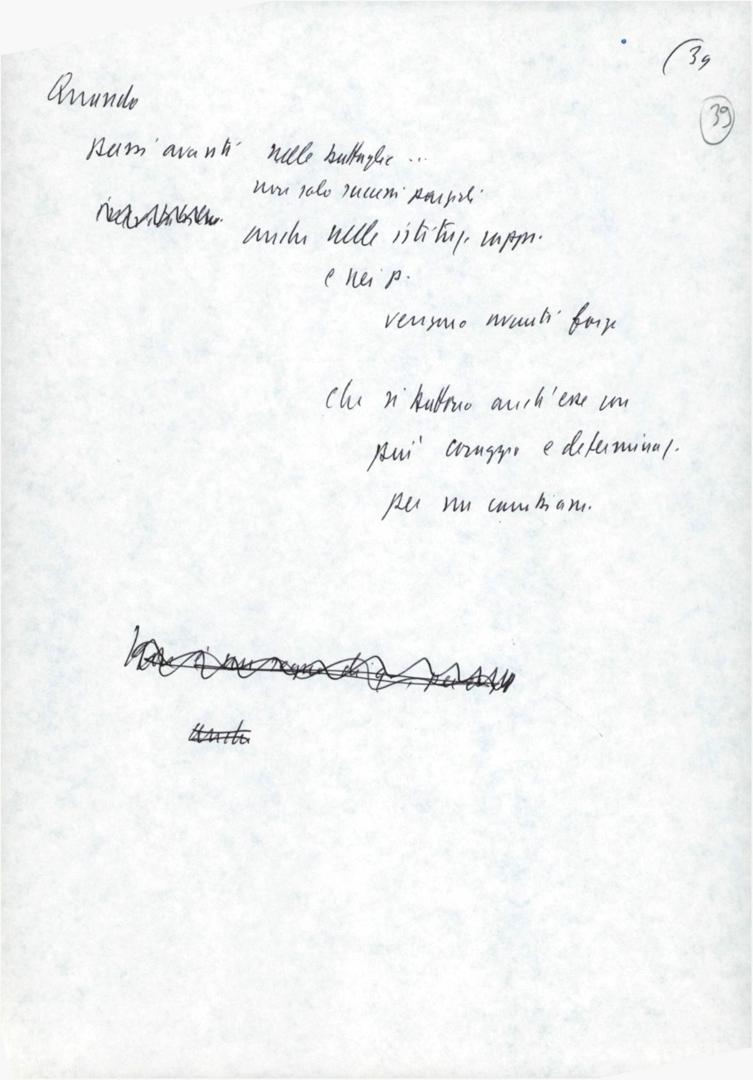 (39
39
Quando
passi avanti nelle battaglie ...
non solo successi parziali
anche nelle istituz. rappr.
e nei p.
vengono avanti forze
che si battono anch'esse con
più coraggio e determinaz.
per un cambiam.
anche